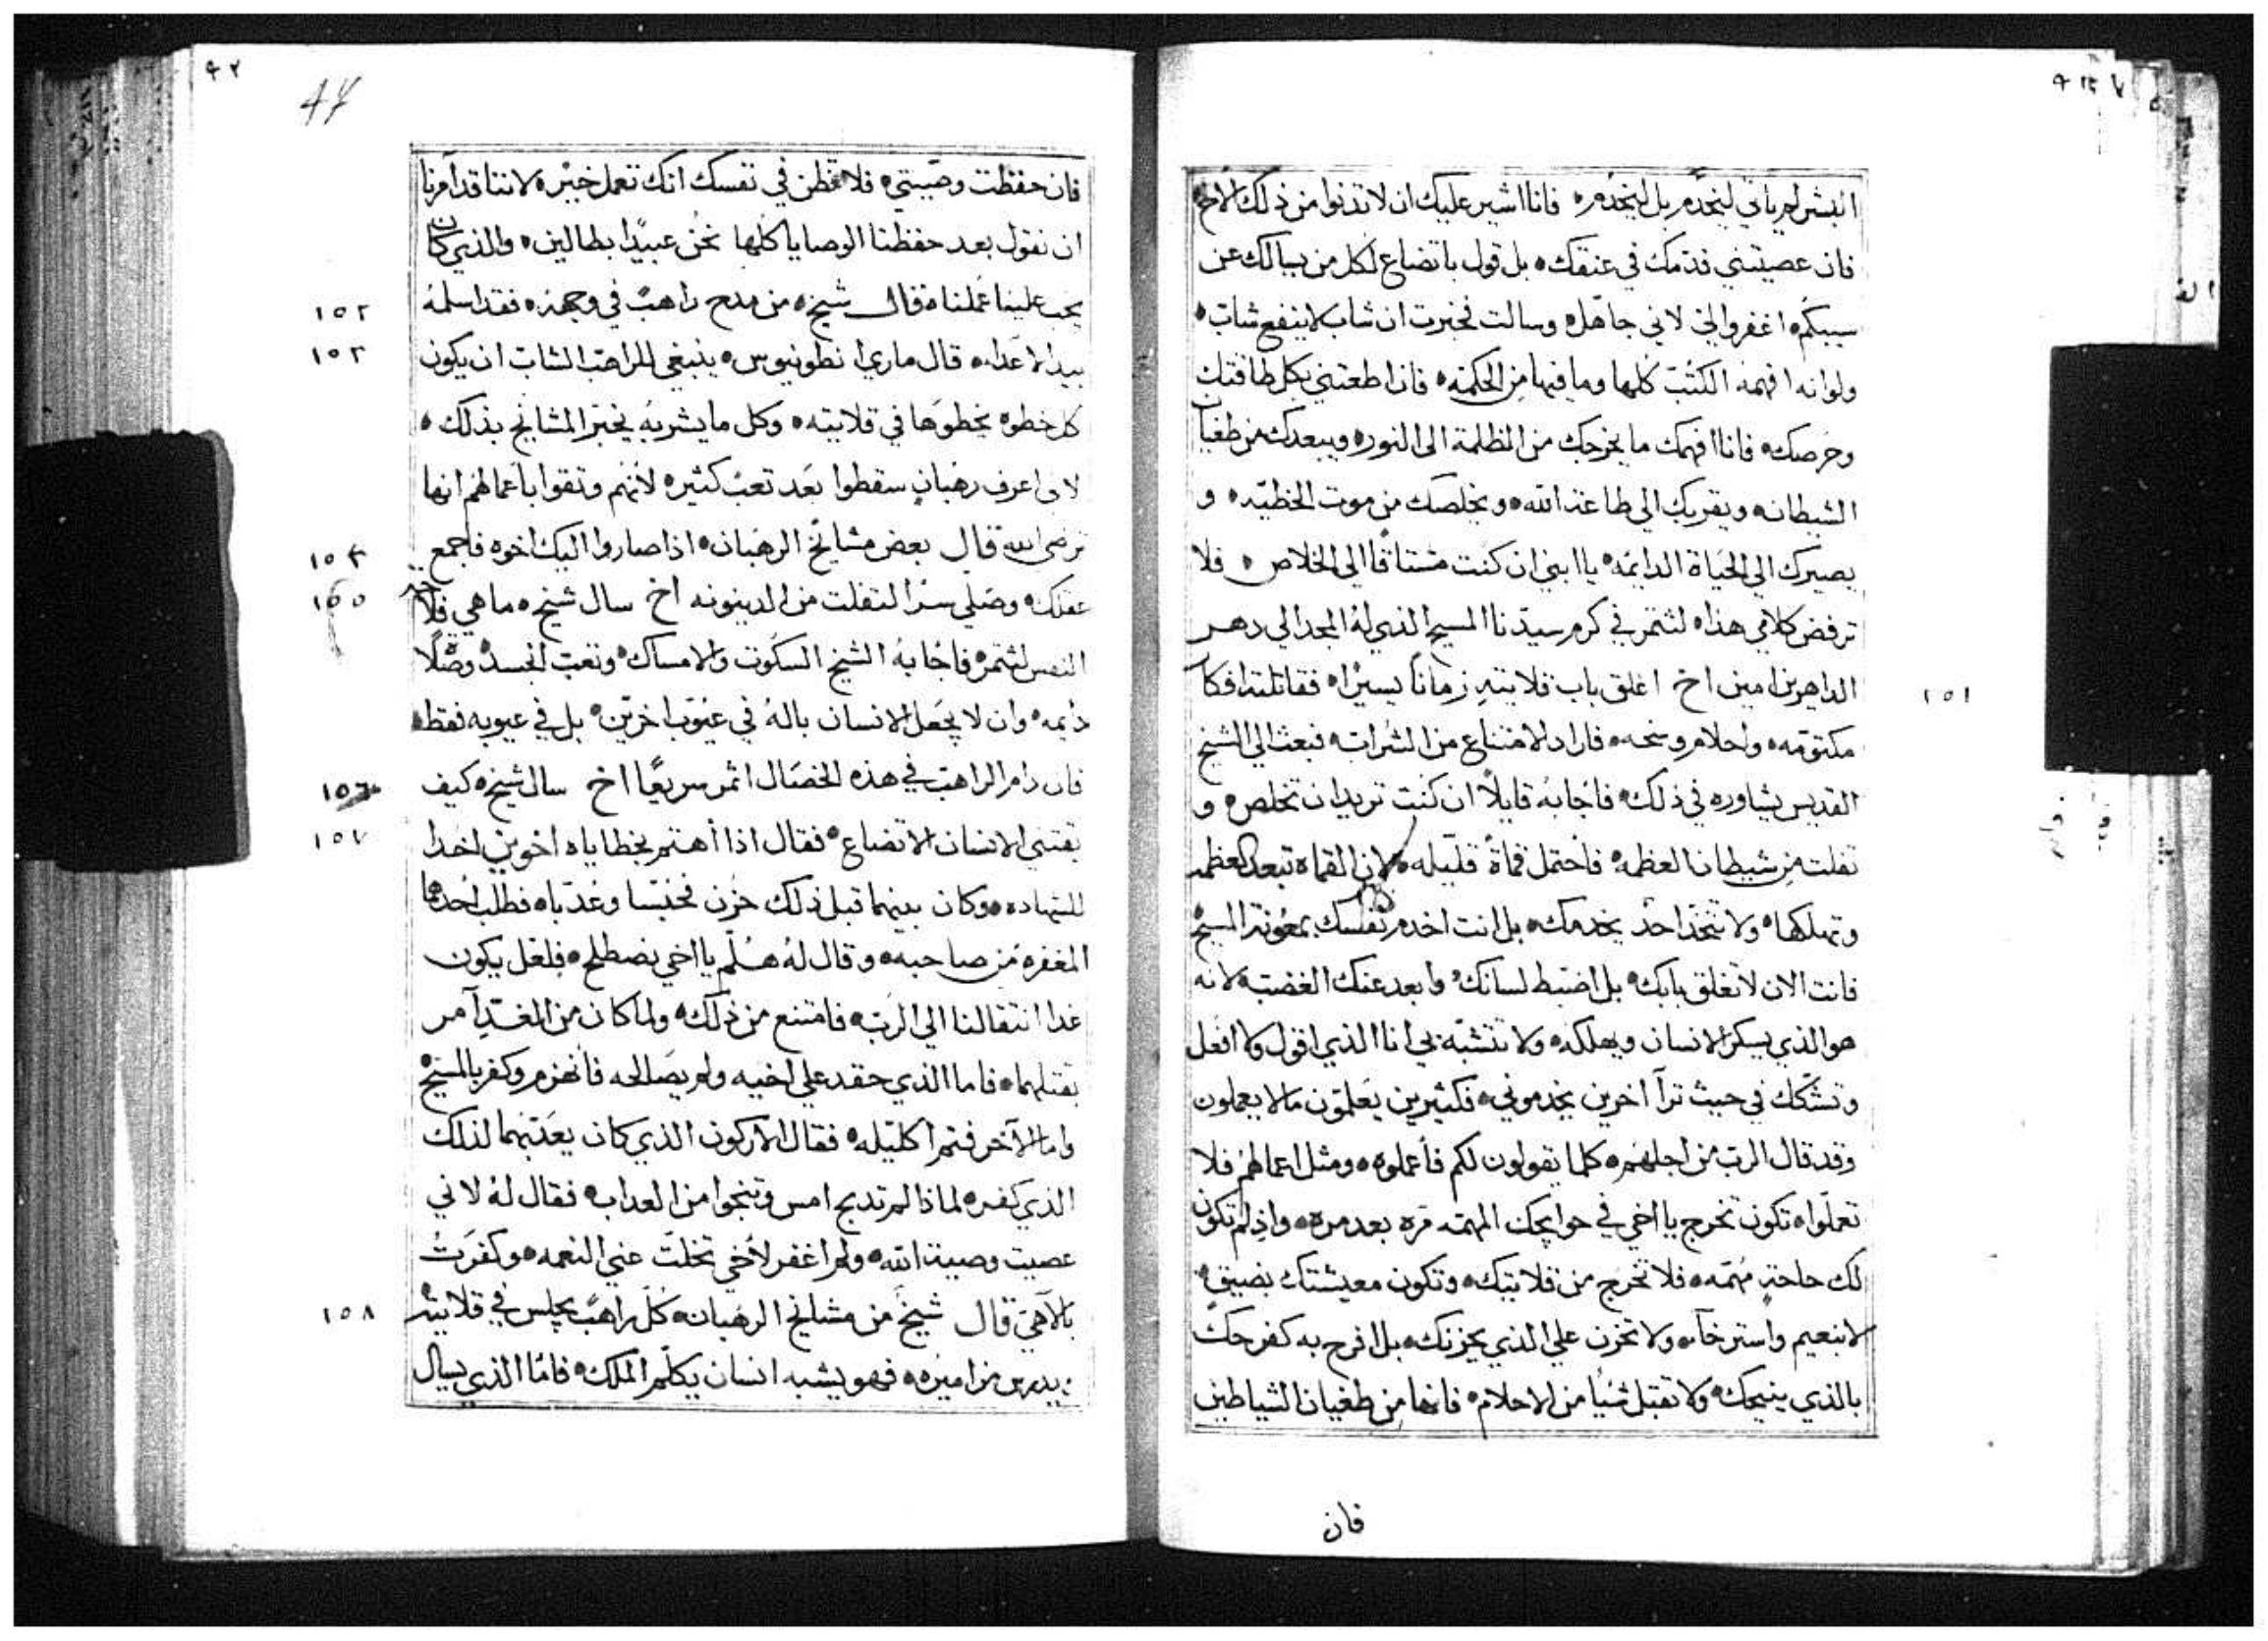 البشر لم ياتي ليُخدَم بل ليخدُم ه فانا اشير عليك ان لا تدنوا من ذلك الاخ ه
فان عصيتني فدمك في عنقك ه بل قول باتضاع لكل من يسالك عن
سببكم ه اغفروا لي لاني جاهل ه وسالت فخبرت ان شاب لا ينفع شاب ه
ولو انه افهمه الكتب كلها وما فيها من الحكمه ه فان اطعتني بكل طاقتك
وحرصك ه فانا افهمك ما يخرجك من الظلمة الى النور ه ويبعدك من طغيان
الشيطان ه ويقربك الي طاعة الله ه ويخلصك من موت الخطيه ه و
يصيرك الي الحياة الدايمه ه يا ابني ان كنت مشتاقا الي الخلاص ه فلا
ترفض كلامي هذا ه لتثمر في كرم سيدنا المسيح الذي له المجد الي دهر
الداهرين امين اخ اغلق باب قلايته زمانا يسيرا ه فقاتلته افكار
١٥١
مكتومه ه واحلام وسخه ه فاراد الامتناع من الشراب ه فبعث الي الشيخ
القديس يشاوره في ذلك ه فاجابه قايلا ان كنت تريد ان تخلص ه و
تفلت من شيطان العظمه ه فاحتمل قماة قليله ه لان القماة تبعد العظمه
وتهلكها ه ولا تتخذ احد يخدمك ه بل انت اخدم نفسك بمعونة المسيح
فانت الان لا تغلق بابك ه بل اضبط لسانك ه وابعد عنك الغضب ه لانه
هو الذي يسكر الانسان ويهلكه ه ولا تتشبه بي انا الذي اقول ولا افعل
وتشكك في حيث ترا اخرين يخدموني ه فكثيرين يعلمون ما لا يعملون
وقد قال الرب من اجلهم ه كلما يقولون لكم فاعملوه ه ومثل اعمالهم فلا
تعملوا ه تكون تخرج يا اخي في حوايجك المهمه مره بعد مره ه واذ لم تكون
لك حاجة مهمه ه فلا تخرج من قلايتك ه وتكون معيشتك بضيق ه
لا بنعيم واسترخاء ه ولا تحزن علي الذي يحزنك ه بل افرح به كفرحك
بالذي ينيحك ه ولا تقبل شيا من الاحلام ه فانها من طغيان الشياطين
فان
فان حفظت وصيتي ه فلا تظن في نفسك انك تعمل خير ه لاننا قد امرنا
ان نقول بعد حفظنا الوصايا كلها نحن عبيدا بطالين ه والذي كان
يجب علينا عملناه قال شيخ ه من مدح راهب في وجهه ه فقد اسلمه
١٥٢
بيد الاعداء ه قال ماري انطونيوس ه ينبغي للراهب الشاب ان يكون
١٥٣
كل خطوه يخطوها في قلايته ه وكل ما يشربه يخبر المشايخ بذلك ه
لاني اعرف رهبان سقطوا بعد تعب كثير ه لانهم وثقوا باعمالهم انها
ترضي الله قال بعض مشايخ الرهبان ه اذا صاروا اليك اخوه فاجمع
١٥٤
عقلك ه وصلي سرا لتفلت من الدينونه اخ سال شيخ ه ما هي فلاحة
١٥٥
النفس لتثمر ه فاجابه الشيخ السكوت والامساك ه وتعب الجسد ه وصلاة
دايمه ه وان لا يجعل الانسان باله في عيوب اخرين ه بل في عيوبه فقط ه
فان دام الراهب في هذه الخصال اثمر سريعا اخ سال شيخ ه كيف
١٥٦
يقتني الانسان الاتضاع ه فقال اذا اهتم بخطاياه اخوين اخدا
١٥٧
للشهاده ه وكان بينهما قبل ذلك حزن فحبسا وعذبا ه فطلب احدهما
المغفره من صاحبه ه وقال له هلم يا اخي نصطلح ه فلعل يكون
غدا انتقالنا الي الرب ه فامتنع من ذلك ه ولما كان من الغد امر
بقتلهما ه فاما الذي حقد علي اخيه ولم يصالحه فانهزم وكفر بالمسيح
واما الاخر فتم اكليله ه فقال الاركون الذي كان يعذبهما لذلك
الذي كفر ه لماذا لم تديح امس وتنجوا من العداب ه فقال له لاني
عصيت وصية الله ه ولم اغفر لاخي تخلت عني النعمه ه وكفرت
بالاهي قال شيخ من مشايخ الرهبان ه كل راهب يجلس في قلايته
١٥٨
ويدرس مزاميره ه فهو يشبه انسان يكلم الملك ه فاما الذي يسال